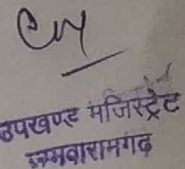 उपखण्ड मजिस्ट्रेट
जमवारामगढ़